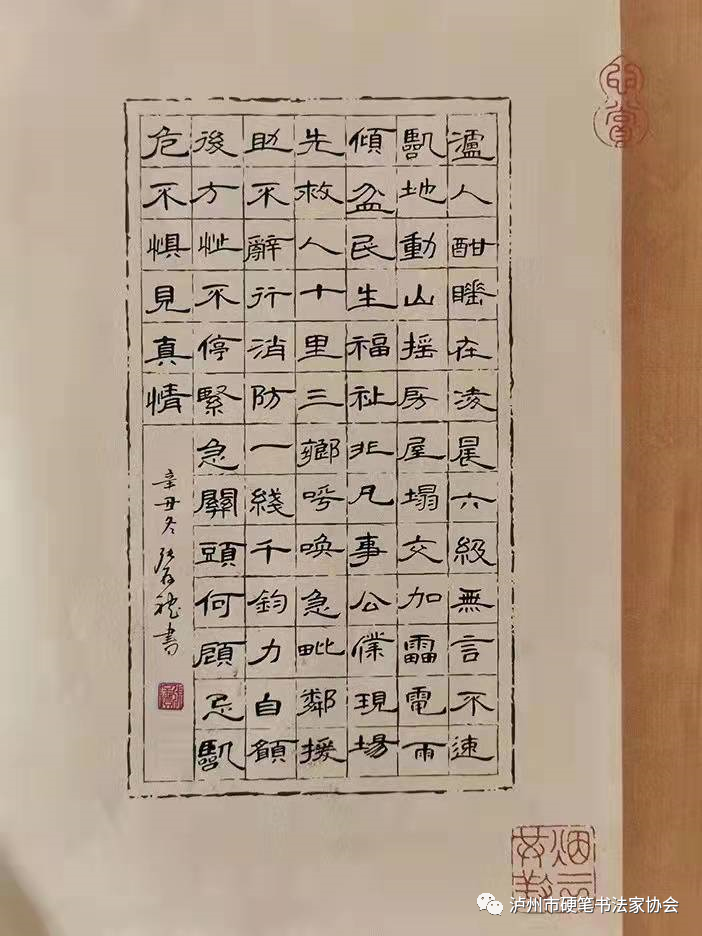 瀘人酣睡在凌晨六級無言不速
臨地動山搖房屋塌交加雷電雨
傾盆民生福祉非凡事公僕現場
先救人十里三鄉呼喚急毗鄰援
助不辭行消防一綫千鈞力自願
後方不停緊急關頭何顧忌臨
危不懼見真情
辛丑冬書
泸州市硬笔书法家协会